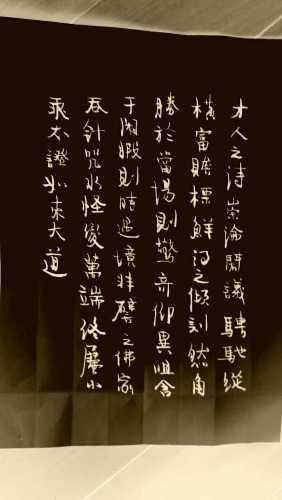 才人之诗崇论闳議騁馳縱
橫富贍標鮮得之傾刻然角
勝於當場則驚奇仰異咀含
于閑暇則時過境非譬之佛家
吞針咒水怪變萬端终屬小
乘不證如来大道